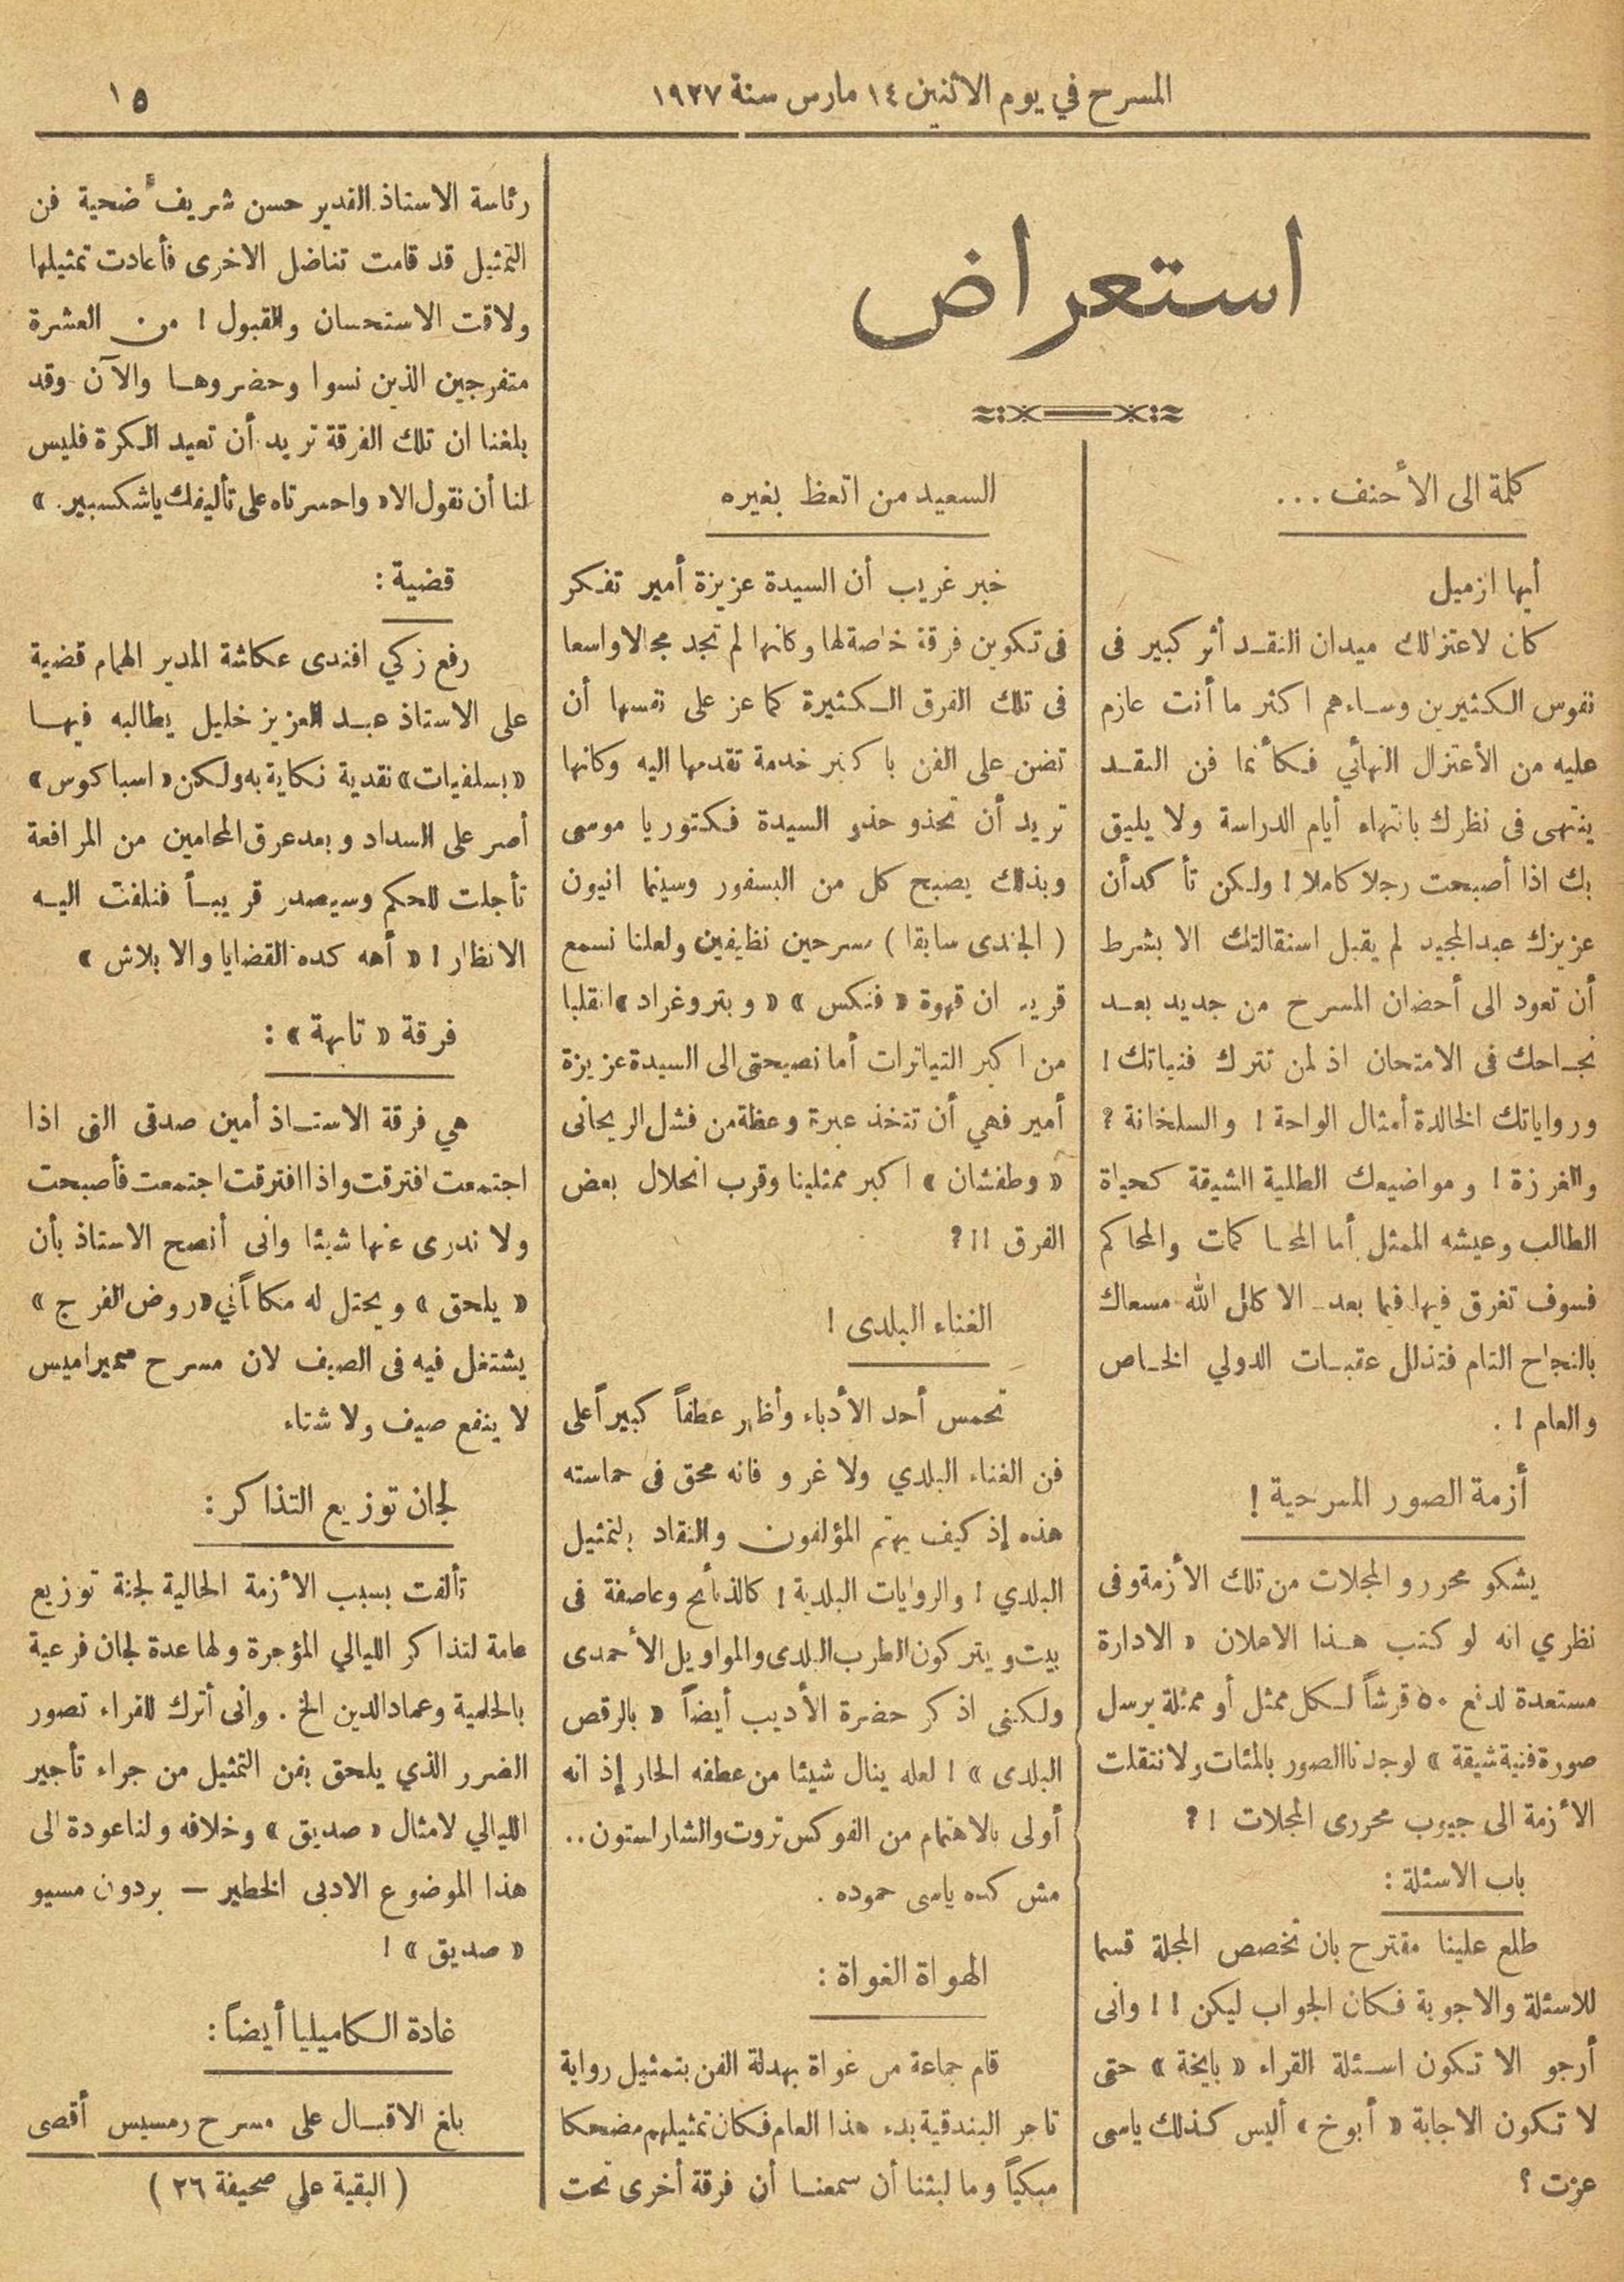 المسرح في يوم الاثنين ١٤ مارس سنة ١٩٢٧
١٥
استعراض
كلمة الى الأحنف . . .
أيها ازميل
كان لاعتزالك ميدان النقد أثر كبير فى
نفوس الكثيرين وساءهم اكثر ما أنت عازم
عليه من الأعتزال النهائي فكأنما فن النقد
ينتهى فى نظرك بانتهاء أيام الدراسة ولا يليق
بك اذا أصبحت رجلا كاملا ! ولكن تأكد أن
عزيزك عبد المجيد لم يقبل استقالتك الا بشرط
أن تعود الى أحضان المسرح من جديد بعد
نجاحك فى الامتحان اذ لمن تترك فنياتك !
ورواياتك الخالدة أمثال الواحة ! والسلخانة ؟
والغرزة ! ومواضيعك الطلية الشيقة كحياة
الطالب وعيشه الممثل أما المحاكمات والمحاكم
فسوف تغرق فيها فيما بعد . الا كال الله مسعاك
بالنجاح التام فتذلل عقبات الدولي الخاص
والعام ! .
أزمة الصور المسرحية !
يشكو محررو المجلات من تلك الأزمة وفى
نظري انه لو كتب هذا الاعلان « الادارة
مستعدة لدفع ٥٠ قرشاً لكل ممثل أو ممثلة يرسل
صورة فنية شيقة » لوجدنا الصور بالمئات ولانتقلت
الأزمة الى جيوب محررى المجلات ! ؟
باب الاسئلة :
طلع علينا مقترح بان تخصص المجلة قسما
للاسئلة والاجوبة فكان الجواب ليكن ! ! وانى
أرجو الا تكون اسئلة القراء « بايخة » حتى
لا تكون الاجابة « أبوخ » أليس كذلك ياسى
عزت ؟
السعيد من اتعظ بغيره
خبر غريب أن السيدة عزيزة أمير تفكر
فى تكوين فرقة خاصة لها وكانها لم تجد مجالا واسعا
فى تلك الفرق الكثيرة كما عز على نفسها أن
تضن على الفن باكبر خدمة تقدمها اليه وكانها
تريد أن تحذو حذو السيدة فكتوريا موسى
وبذلك يصبح كل من البسفور وسينما انيون
( الجندى سابقا ) مسرحين نظيفين ولعلنا نسمع
قريبا ان قهوة « فنكس » « وبتروغراد » انقلبا
من اكبر التياترات أما نصيحتى الى السيدة عزيزة
أمير فهي أن تتخذ عبرة وعظة من فشل الريحانى
« وطفشان » اكبر ممثلينا وقرب انحلال بعض
الفرق ! ! ؟
الغناء البلدى !
تحمس أحد الأدباء وأظهر عطفاً كبيراً على
فن الغناء البلدي ولا غرو فانه محق فى حماسته
هذه إذ كيف يهتم المؤلفون والنقاد بالتمثيل
البلدي ! والروايات البلدية ! كالذبائح وعاصفة فى
بيت ويتركون الطرب البلدى والمواويل الأحمدى
ولكنى اذكر حضرة الأديب أيضاً « بالرقص
البلدى » ! لعله ينال شيئا من عطفه الحار إذ انه
أولى بالاهتمام من الفوكس تروت والشارلستون . .
مش كده ياسى حموده .
الهواة الغواة :
قام جماعة من غواة بهدلة الفن بتمثيل رواية
تاجر البندقية بدء هذا العام فكان تمثيلهم مضحكا
مبكياً وما لبثنا أن سمعنا أن فرقة أخرى تحت
رئاسة الاستاذ القدير حسن شريف ضحية فن
التمثيل قد قامت تناضل الاخرى فأعادت تمثيلها
ولاقت الاستحسان والقبول ! من العشرة
متفرجين الذين نسوا وحضروها والآن وقد
بلغنا ان تلك الفرقة تريد أن تعيد الكرة فليس
لنا أن نقول الا « واحسرتاه على تأليفك ياشكسبير . »
قضية :
رفع زكي افندى عكاشة المدير الهمام قضية
على الاستاذ عبد العزيز خليل يطالبه فيها
« بسلفيات » نقدية نكاية به ولكن « اسباكوس »
أصر على السداد وبعد عرق المحامين من المرافعة
تأجلت للحكم وسيصدر قريباً فنلفت اليه
الانظار ! « أهه كده القضايا والا بلاش »
فرقة « تايهة » :
هي فرقة الاستاذ أمين صدقى التى اذا
اجتمعت افترقت واذا افترقت اجتمعت فأصبحت
ولا ندرى عنها شيئا وانى أنصح الاستاذ بأن
« يلحق » ويحتل له مكاناً في « روض الفرج »
يشتغل فيه فى الصيف لان مسرح سميراميس
لا ينفع صيف ولا شتاء
لجان توزيع التذاكر :
تألفت بسبب الأزمة الحالية لجنة توزيع
عامة لتذاكر الليالي المؤجرة ولها عدة لجان فرعية
بالحلمية وعماد الدين الخ . وانى أترك للقراء تصور
الضرر الذي يلحق بفن التمثيل من جراء تأجير
الليالي لامثال « صديق » وخلافه ولنا عودة الى
هذا الموضوع الادبى الخطير — بردون مسيو
« صديق » !
غادة الكاميليا أيضاً :
بلغ الاقبال على مسرح رمسيس أقصى
( البقية على صحيفة ٢٦ )